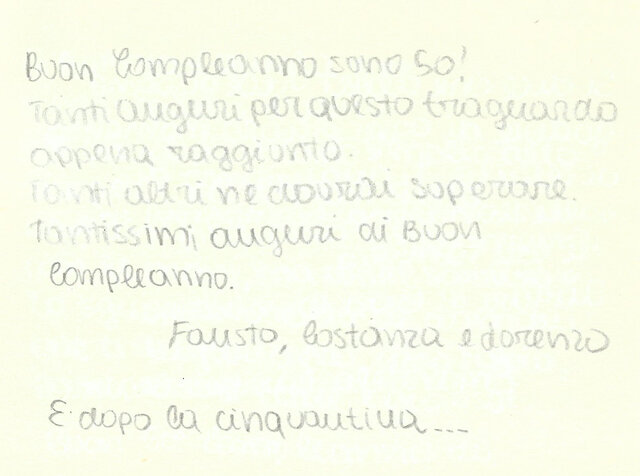 Buon Compleanno sono 50!
Tanti auguri per questo traguardo
appena raggiunto.
Tanti altri ne dovrai superare.
Tantissimi auguri di Buon
Compleanno.
Fausto, Costanza e Lorenzo
E dopo la cinquantina...